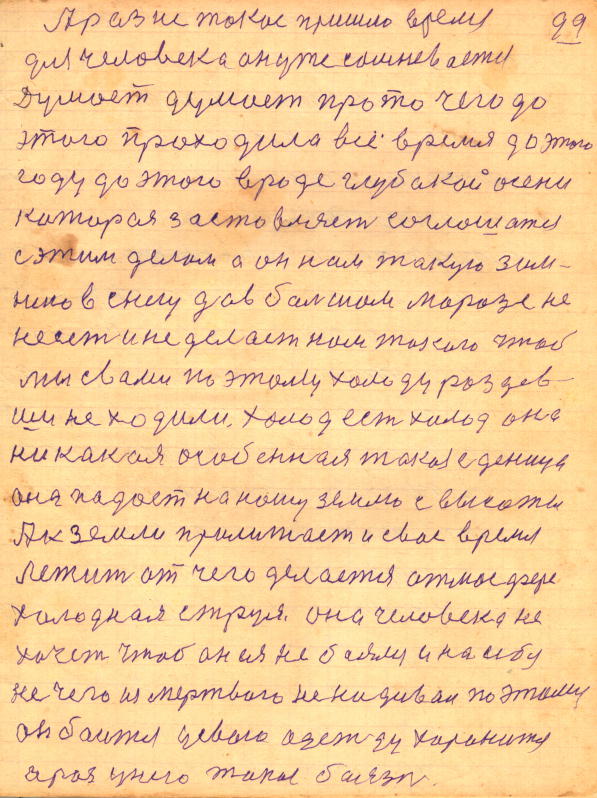 А раз не токое пришло время 99
для человека он уже сомневается
Думоет думоет про то чего до
этого проходила всё время до этого
году до этого вроде глубакой осени
которая застовляет соглошатся
с этим делом а он нам такую зим-
нюю в снегу да в балшом марозе не
несет и не делает ном токого чтоб
мы свами поэтому холоду раздев-
ши не ходили. холод ест холод она
никакая особенная такая еденица
она падает на ношу землю с высоты
А к земли прилитает и свое время
летит от чего делается атмосфере
холодная струя. она человека не
хочет чтоб он ея не баялся и на себя
не чего из мертвого не надивал поэтому
он баится уевого одежду хоронится
а раз у него такое баязн.